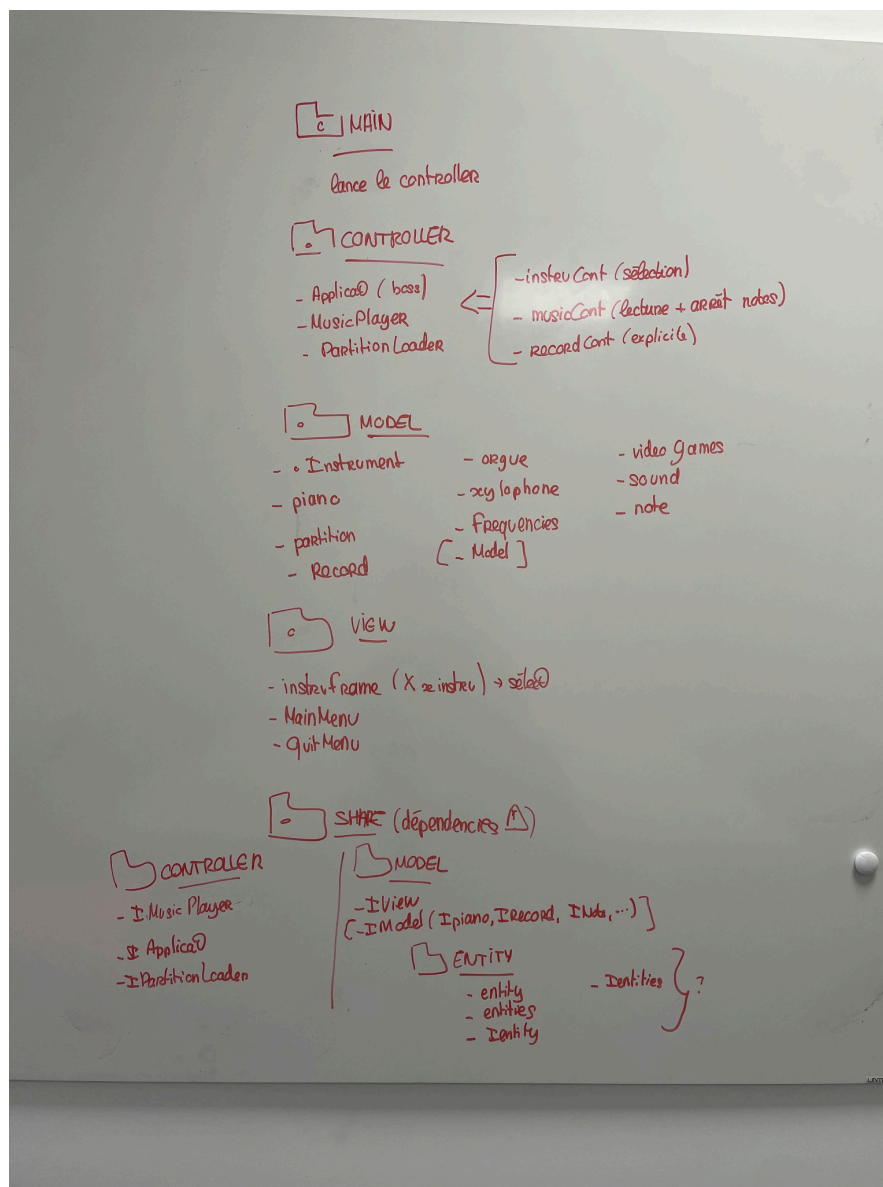 MAIN
lance le controller
CONTROLLER
- Applica① (boss)
- MusicPlayer
- PartitionLoader
<= - instruCont (sélection)
- musicCont (lecture + arrêt notes)
- RecordCont (explicite)
MODEL
- • Instrument
- piano
- partition
- Record
- orgue
- xylophone
- Frequencies
[- Model]
- video games
- sound
- note
VIEW
- instruframe (X instru) → sélec①
- MainMenu
- quitMenu
SHARE (dépendencies ⚠)
CONTROLLER
- IMusicPlayer
- I Applica①
- IPartitionLoader
MODEL
- IView
[- IModel (Ipiano, IRecord, INote, ...)]
ENTITY
- entity
- entities
- Ientity
- Ientities } ?